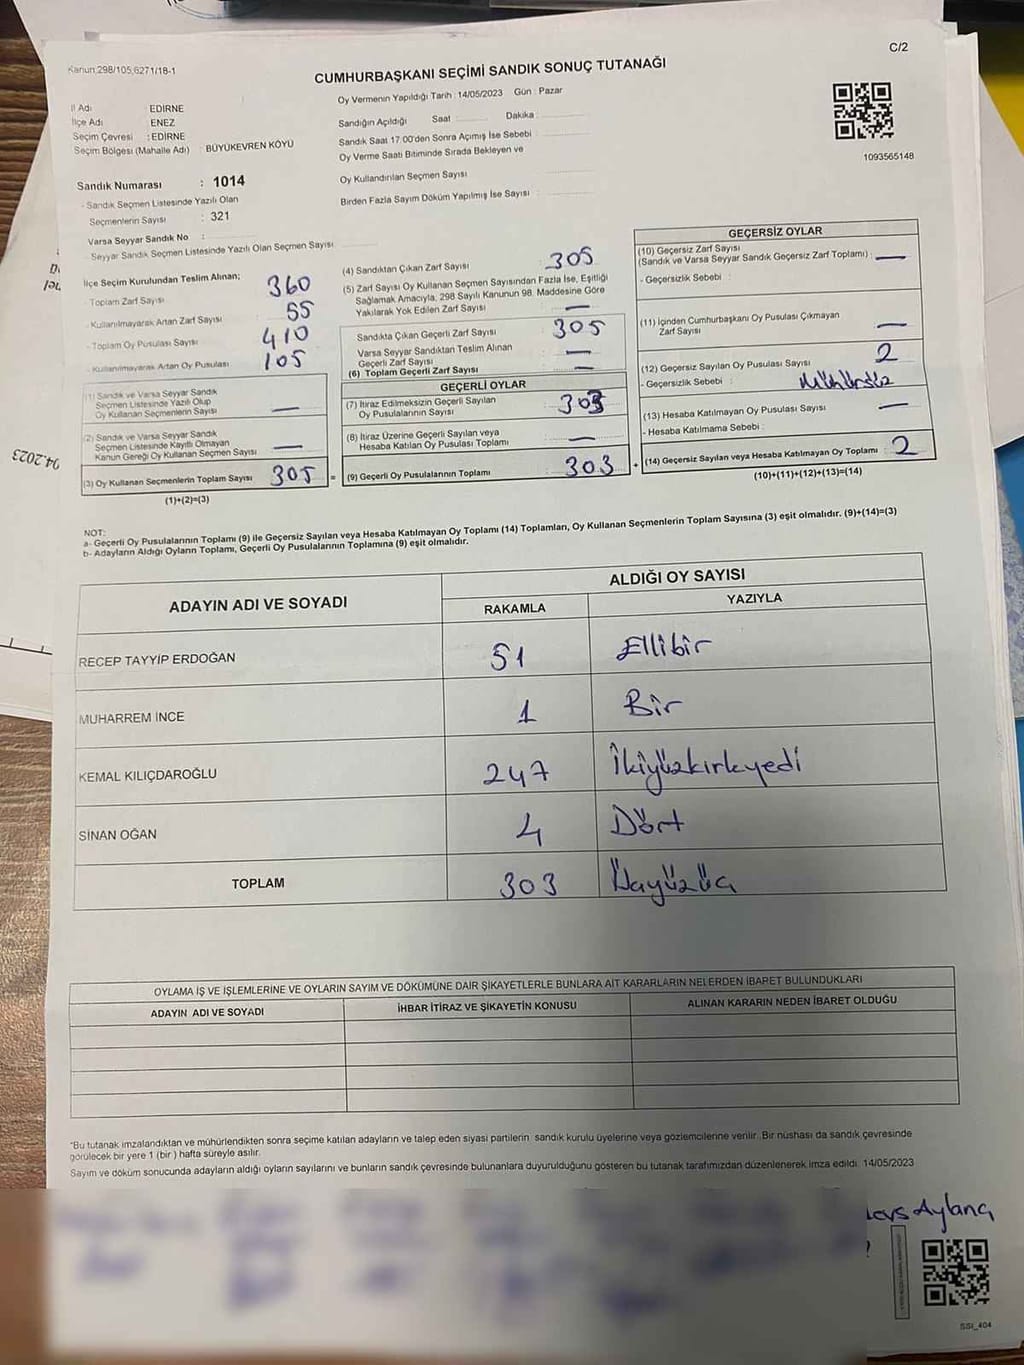 C/2
Kanun:298/105;6271/18-1
CUMHURBAŞKANI SEÇİMİ SANDIK SONUÇ TUTANAĞI
İl Adı : EDİRNE
İlçe Adı : ENEZ
Seçim Çevresi : EDİRNE
Seçim Bölgesi (Mahalle Adı) : BÜYÜKEVREN KÖYÜ
Sandık Numarası : 1014
- Sandık Seçmen Listesinde Yazılı Olan
Seçmenlerin Sayısı : 321
Varsa Seyyar Sandık No :
- Seyyar Sandık Seçmen Listesinde Yazılı Olan Seçmen Sayısı
Oy Vermenin Yapıldığı Tarih : 14/05/2023 Gün : Pazar
Sandığın Açıldığı Saat : Dakika :
Sandık Saat 17.00'den Sonra Açımış İse Sebebi :
Oy Verme Saati Bitiminde Sırada Bekleyen ve
Oy Kullandırılan Seçmen Sayısı
Birden Fazla Sayım Döküm Yapılmış İse Sayısı :
1093565148
İlçe Seçim Kurulundan Teslim Alınan;
- Toplam Zarf Sayısı 360
- Kullanılmayarak Artan Zarf Sayısı 55
- Toplam Oy Pusulası Sayısı 410
- Kullanılmayarak Artan Oy Pusulası 105
(1) Sandık ve Varsa Seyyar Sandık
Seçmen Listesinde Yazılı Olup
Oy Kullanan Seçmenlerin Sayısı —
(2) Sandık ve Varsa Seyyar Sandık
Seçmen Listesinde Kayıtlı Olmayan
Kanun Gereği Oy Kullanan Seçmen Sayısı —
(3) Oy Kullanan Seçmenlerin Toplam Sayısı 305 =
(1)+(2)=(3)
(4) Sandıktan Çıkan Zarf Sayısı 305
(5) Zarf Sayısı Oy Kullanan Seçmen Sayısından Fazla İse, Eşitliği
Sağlamak Amacıyla, 298 Sayılı Kanunun 98. Maddesine Göre
Yakılarak Yok Edilen Zarf Sayısı —
Sandıkta Çıkan Geçerli Zarf Sayısı 305
Varsa Seyyar Sandıktan Teslim Alınan
Geçerli Zarf Sayısı —
(6) Toplam Geçerli Zarf Sayısı —
GEÇERLİ OYLAR
(7) İtiraz Edilmeksizin Geçerli Sayılan
Oy Pusulalarının Sayısı 303
(8) İtiraz Üzerine Geçerli Sayılan veya
Hesaba Katılan Oy Pusulası Toplamı —
(9) Geçerli Oy Pusulalarının Toplamı 303 +
GEÇERSİZ OYLAR
(10) Geçersiz Zarf Sayısı
(Sandık ve Varsa Seyyar Sandık Geçersiz Zarf Toplamı) : —
- Geçersizlik Sebebi :
(11) İçinden Cumhurbaşkanı Oy Pusulası Çıkmayan
Zarf Sayısı —
(12) Geçersiz Sayılan Oy Pusulası Sayısı 2
- Geçersizlik Sebebi : Mühürsüz
(13) Hesaba Katılmayan Oy Pusulası Sayısı —
- Hesaba Katılmama Sebebi :
(14) Geçersiz Sayılan veya Hesaba Katılmayan Oy Toplamı : 2
(10)+(11)+(12)+(13)=(14)
NOT:
a- Geçerli Oy Pusulalarının Toplamı (9) ile Geçersiz Sayılan veya Hesaba Katılmayan Oy Toplamı (14) Toplamları, Oy Kullanan Seçmenlerin Toplam Sayısına (3) eşit olmalıdır. (9)+(14)=(3)
b- Adayların Aldığı Oyların Toplamı, Geçerli Oy Pusulalarının Toplamına (9) eşit olmalıdır.
ADAYIN ADI VE SOYADI
ALDIĞI OY SAYISI
RAKAMLA YAZIYLA
RECEP TAYYİP ERDOĞAN 51 Ellibir
MUHARREM İNCE 1 Bir
KEMAL KILIÇDAROĞLU 247 İkiyüzkırkyedi
SİNAN OĞAN 4 Dört
TOPLAM 303 Üçyüzüç
OYLAMA İŞ VE İŞLEMLERİNE VE OYLARIN SAYIM VE DÖKÜMÜNE DAİR ŞİKAYETLERLE BUNLARA AİT KARARLARIN NELERDEN İBARET BULUNDUKLARI
ADAYIN ADI VE SOYADI İHBAR İTİRAZ VE ŞİKAYETİN KONUSU ALINAN KARARIN NEDEN İBARET OLDUĞU
"Bu tutanak imzalandıktan ve mühürlendikten sonra seçime katılan adayların ve talep eden siyasi partilerin sandık kurulu üyelerine veya gözlemcilerine verilir. Bir nüshası da sandık çevresinde
görülecek bir yere 1 (bir ) hafta süreyle asılır.
Sayım ve döküm sonucunda adayların aldığı oyların sayılarını ve bunların sandık çevresinde bulunanlara duyurulduğunu gösteren bu tutanak tarafımızdan düzenlenerek imza edildi. 14/05/2023
Aylanç
SSI_404
04.2023